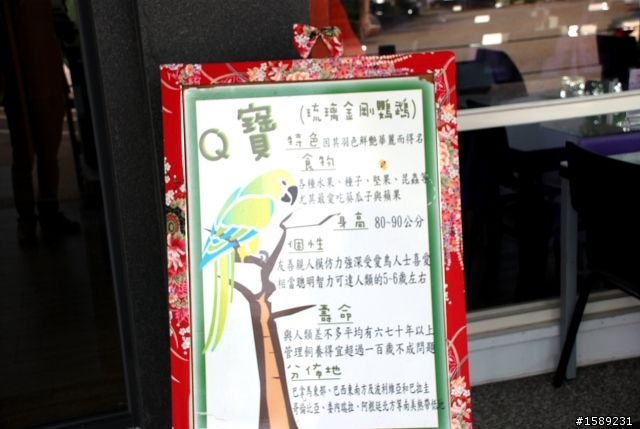 Q寶 (琉璃金剛鸚鵡)
特色 因其羽色鮮艷華麗而得名
食物
各種水果、種子、堅果、昆蟲等
尤其最愛吃葵瓜子與蘋果
身高 80~90公分
個性
友善親人模仿力強深受愛鳥人士喜愛
相當聰明智力可達人類的5-6歲左右
壽命
與人類差不多平均有六七十年以上
管理飼養得宜超過一百歲不成問題
分佈地
巴拿馬東部、巴西東南方及波利維亞和巴拉圭
哥倫比亞、委內瑞拉、阿根廷北方等南美熱帶低地
#1589231